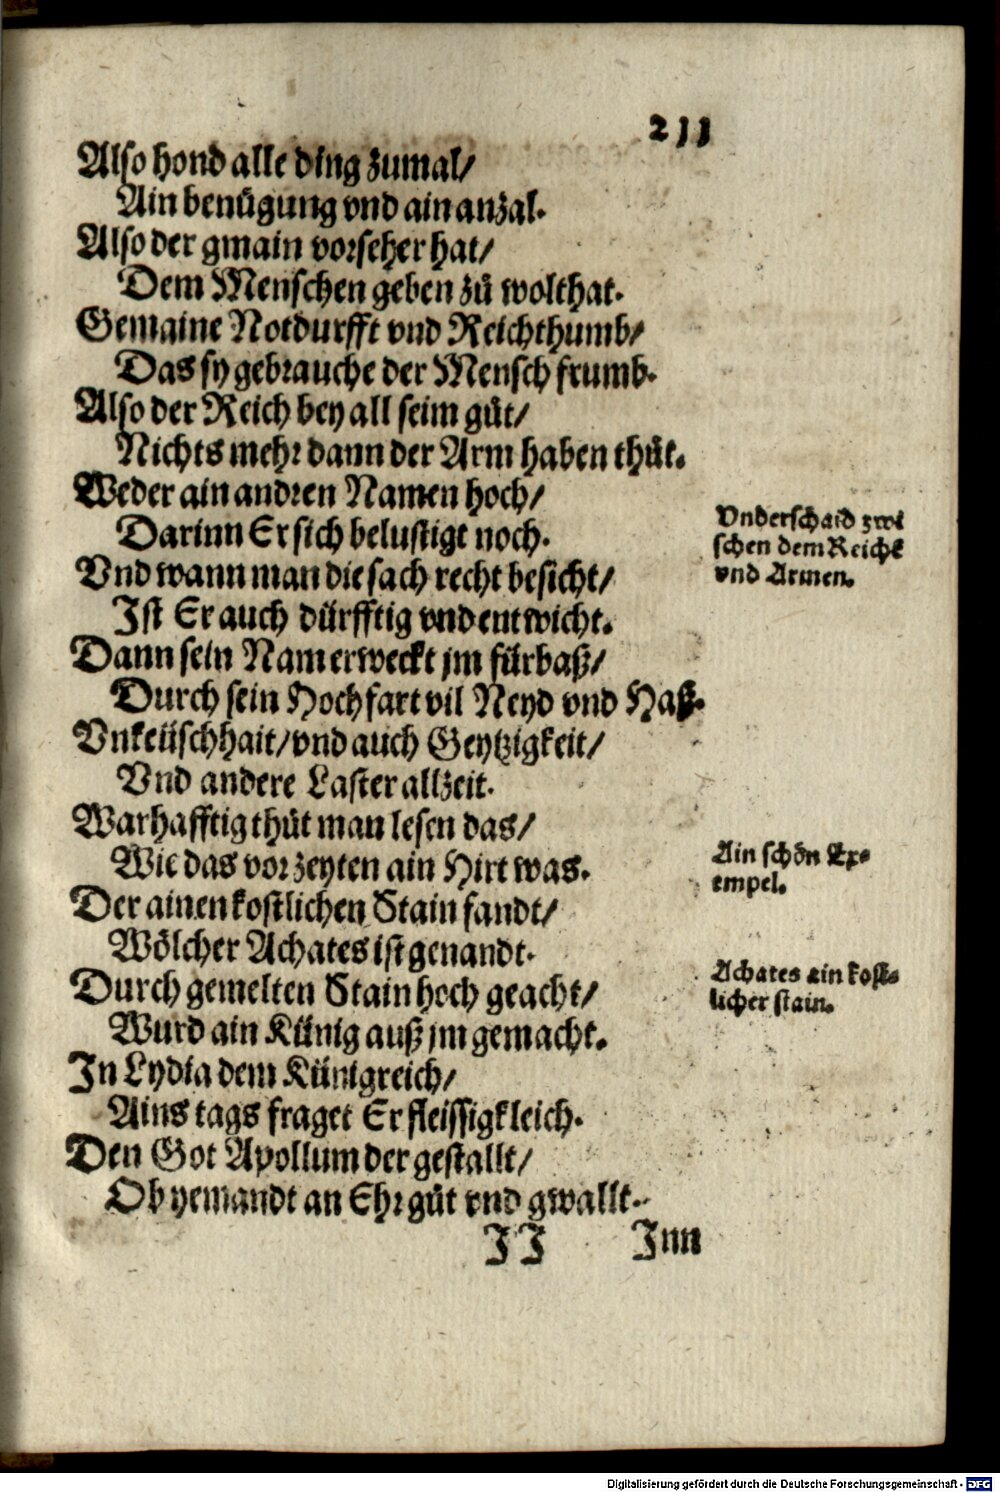 211
Also hond alle ding zumal/
Ain benuͤgung vnd ain anzal.
Also der gmain vorseher hat/
Dem Menschen geben zuͤ wolthat.
Gemaine Notdurfft vnd Reichthumb/
Das sy gebrauche der Mensch frumb.
Also der Reich bey all seim guͤt/
Nichts mehr dann der Arm haben thuͤt.
Weder ain andren Namen hoch/
Darinn Er sich belustigt noch.
Vnd wann man die sach recht besicht/
Ist Er auch dürfftig vnd entwicht.
Dann sein Nam erweckt jm fürbaß/
Durch sein Hochfart vil Neyd vnd Haß.
Vnkeüschhait/vnd auch Geytzigkeit/
Vnd andere Laster allzeit.
Warhafftig thuͤt man lesen das/
Wie das vor zeyten ain Hirt was.
Der ainen kostlichen Stain fandt/
Woͤlcher Achates ist genandt.
Durch gemelten Stain hoch geacht/
Wurd ain Künig auß jm gemacht.
In Lydia dem Künigreich/
Ains tags fraget Er fleissigkleich.
Den Got Apollum der gestallt/
Ob yemandt an Ehr guͤt vnd gwallt.
II Inn
Vnderschaid zwi
schen dem Reichẽ
vnd Armen.
Ain schoͤn Ex=
empel.
Achates ain kost=
licher stain.
Digitalisierung gefördert durch die Deutsche Forschungsgemeinschaft - DFG